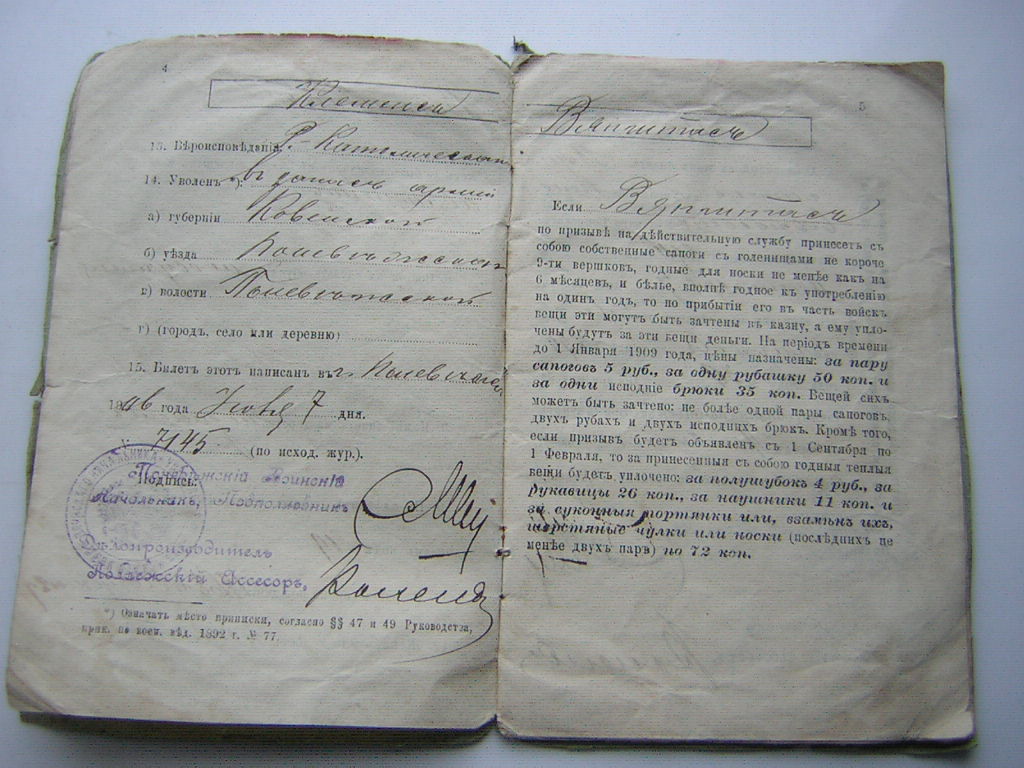 4
13. Вѣроисповѣданія Р. Католическаго
14. Уволенъ *) въ запасъ арміи
а) губерніи Ковенской
б) уѣзда
в) волости
г) (городъ, село или деревню)
15. Билетъ этотъ написанъ въ г.
1906 года Іюня 7 дня.
№ 7145 (по исход. жур.).
Воинскій
Подпись:
Начальникъ, Подполковникъ
Дѣлопроизводитель
Коллежскій Ассесоръ,
*) Означать мѣсто приписки, согласно §§ 47 и 49 Руководства,
прик. по воен. вѣд. 1892 г. № 77.
5
Вянчитасъ
Если Вянчитасъ
по призывѣ на дѣйствительную службу принесетъ съ
собою собственные сапоги съ голенищами не короче
9-ти вершковъ, годные для носки не менѣе какъ на
6 мѣсяцевъ, и бѣлье, вполнѣ годное къ употребленію
на одинъ годъ, то по прибытіи его въ часть войскъ
вещи эти могутъ быть зачтены въ казну, а ему упло-
чены будутъ за эти вещи деньги. На періодъ времени
до 1 Января 1909 года, цѣны назначены: за пару
сапоговъ 5 руб., за одну рубашку 50 коп. и
за одни исподніе брюки 35 коп. Вещей сихъ
можетъ быть зачтено: не болѣе одной пары сапоговъ,
двухъ рубахъ и двухъ исподнихъ брюкъ. Кромѣ того,
если призывъ будетъ объявленъ съ 1 Сентября по
1 Февраля, то за принесенныя съ собою годныя теплыя
вещи будетъ уплочено: за полушубокъ 4 руб., за
рукавицы 26 коп., за наушники 11 коп. и
за суконныя портянки или, взамѣнъ ихъ,
шерстяные чулки или носки (послѣднихъ не
менѣе двухъ паръ) по 72 коп.